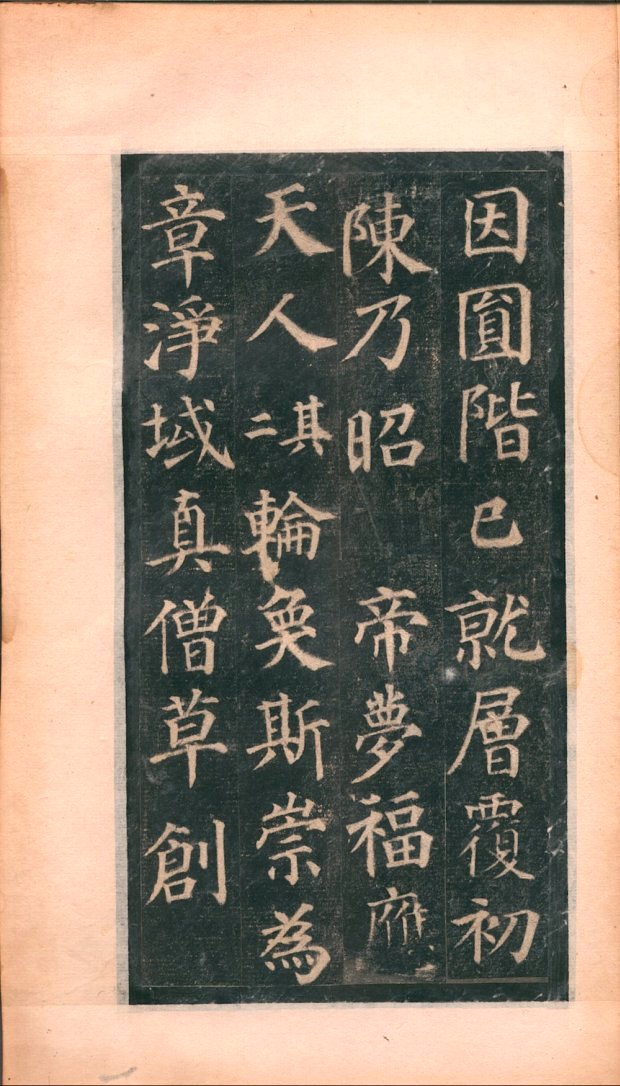 因圓階已就層覆初
陳乃昭 帝夢福應
天人其二輪奐斯崇為
章淨域真僧草創